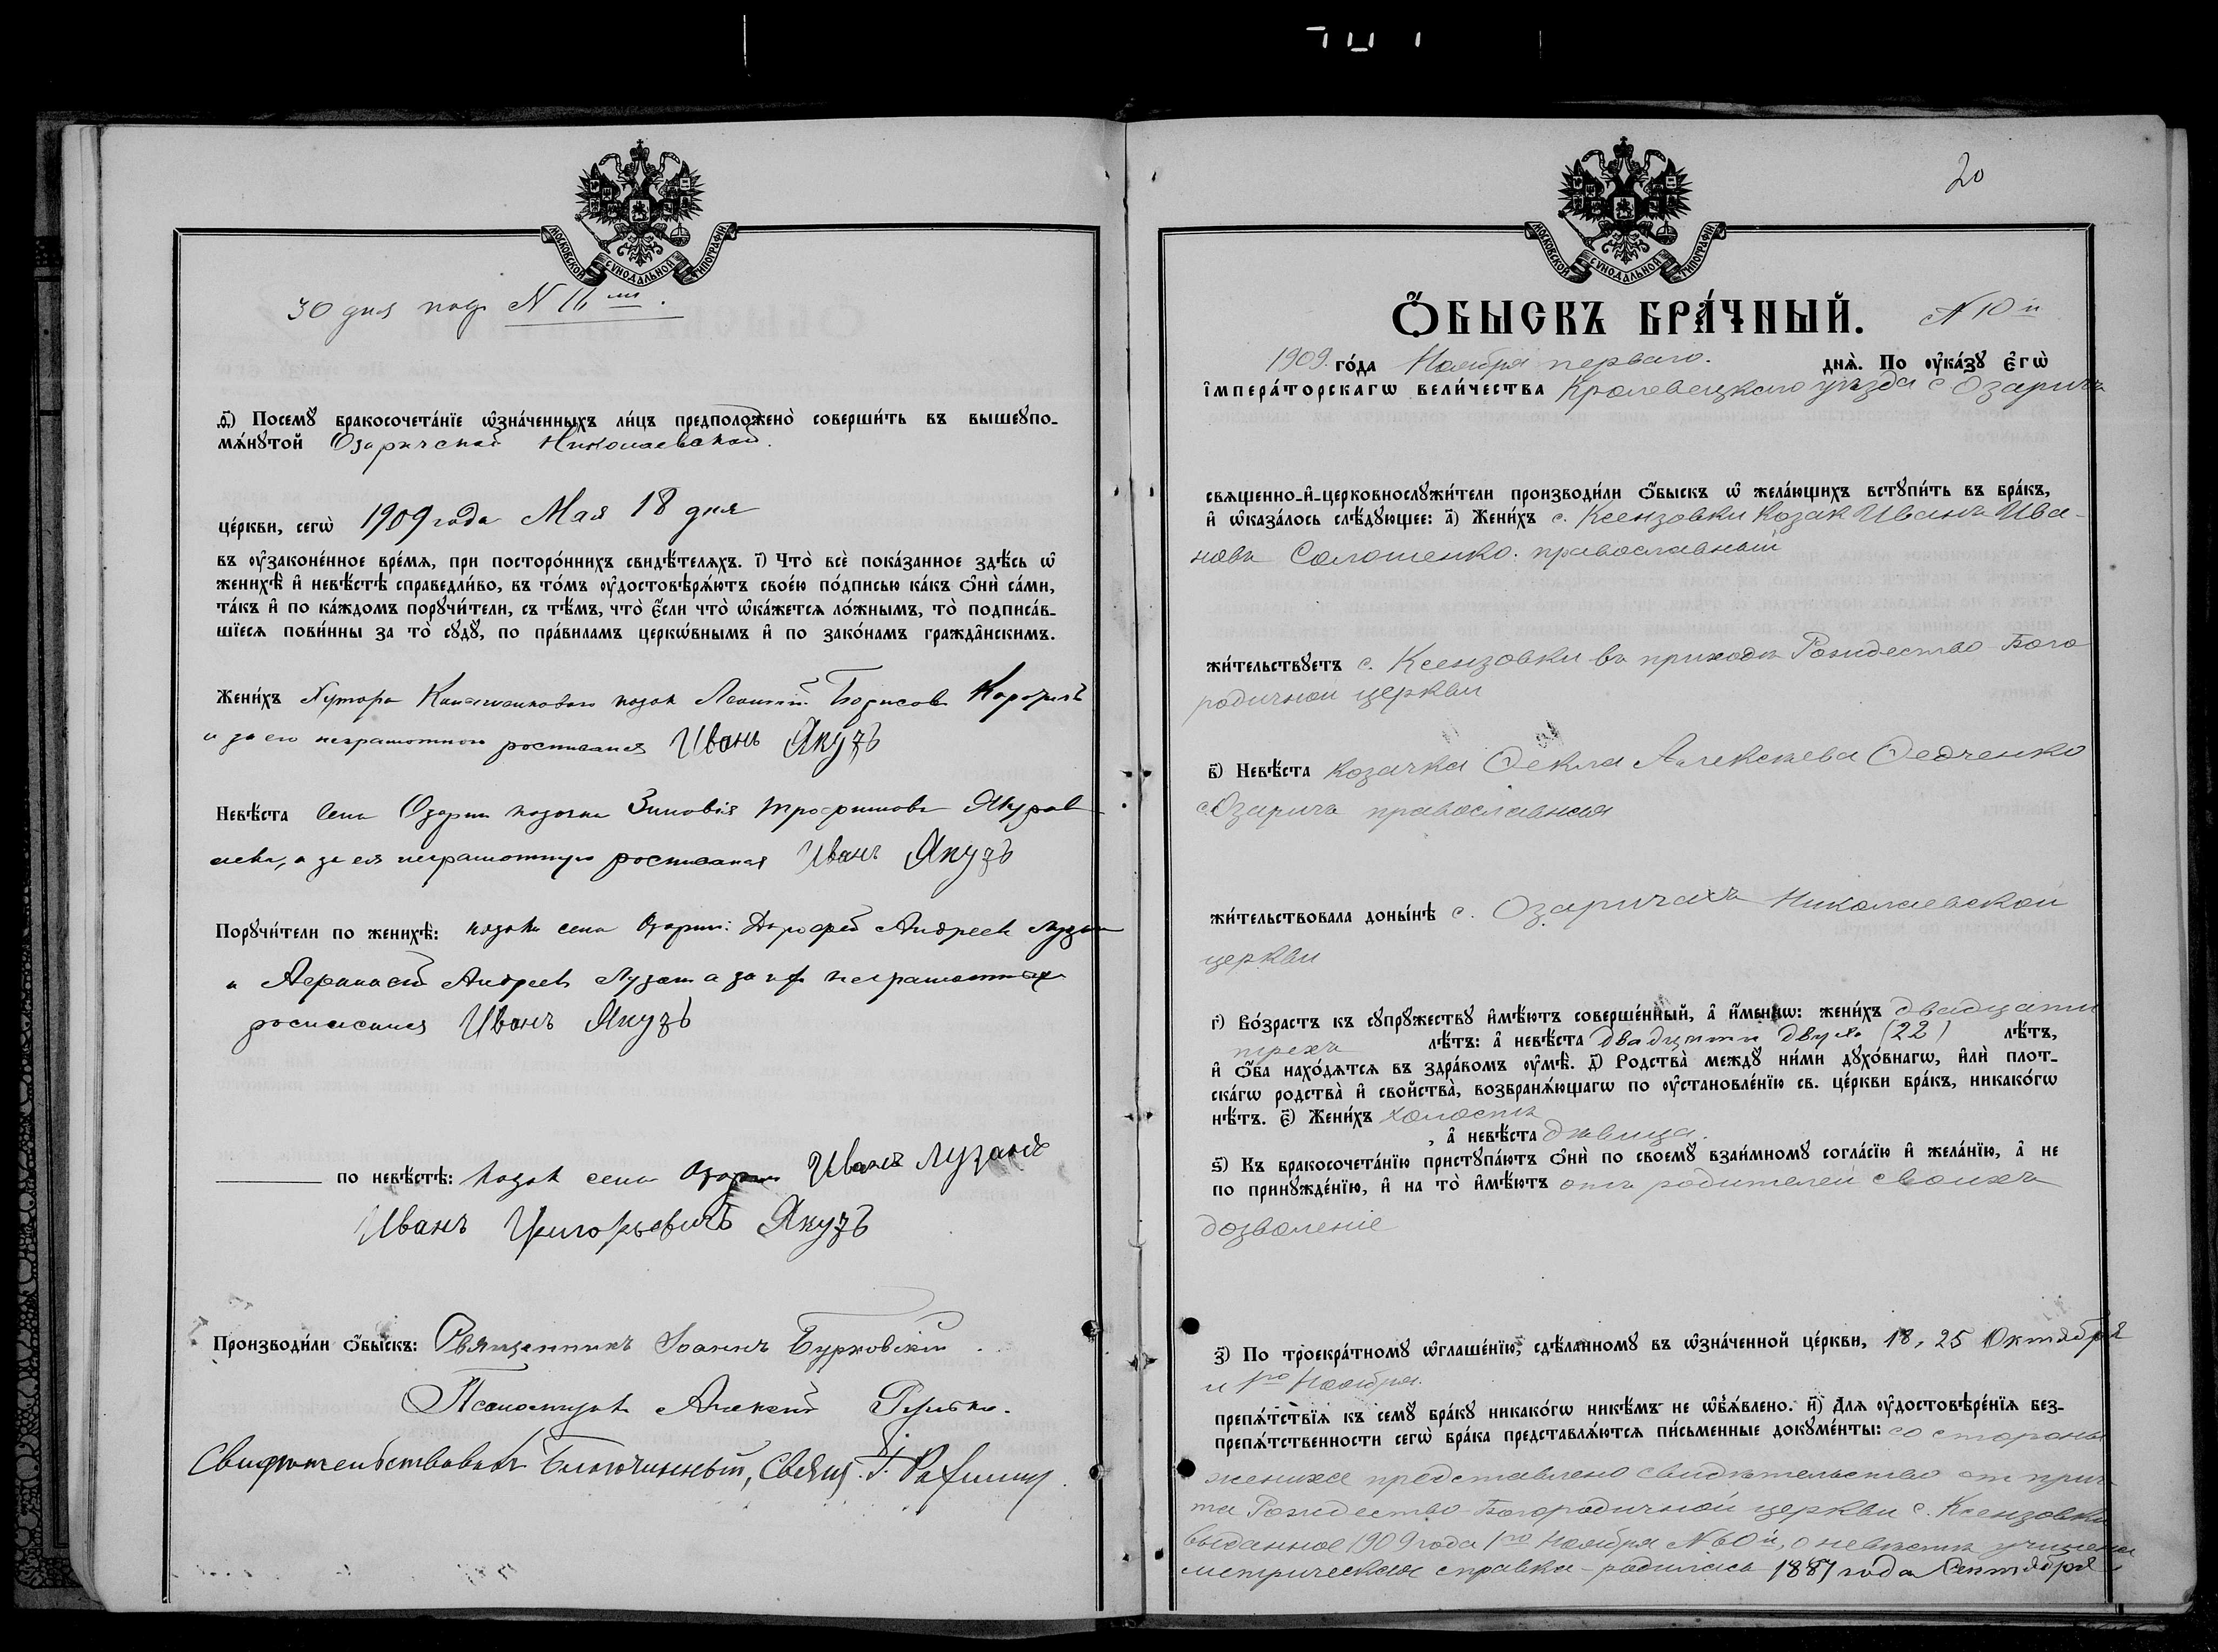 МОСКОВСКОЙ СѴНОДАЛЬНОЙ ТИПОГРАФІИ
30 дня под N 16 мъ.
ѳ҃) Посемꙋ̀ бракосочета́нїе ѡ҆зна́ченныхъ ли́цъ предположено̀ соверши́ть въ вышеꙋпо-
мѧ́нꙋтой Озаричской Николаевской.
це́ркви, сегѡ̀ 1909 года Мая 18 дня
въ ᲂу҆законе́нное вре́мѧ, при посторо́ннихъ свидѣ́телѧхъ. і҃) Что̀ всѐ пока́занное здѣ́сь ѡ҆
женихѣ̀ и҆ невѣ́стѣ справедли́во, въ то́мъ ᲂу҆достовѣрѧ́ютъ свое́ю по́дписью ка́къ ѻ҆нѝ са́ми,
та́къ и҆ по ка́ждомъ порꙋчи́тели, съ тѣ́мъ, что̀ є҆́сли что̀ ѡ҆ка́жетсѧ ло́жнымъ, то̀ подписа́в-
шїесѧ пови́нны за то̀ сꙋдꙋ̀, по пра́виламъ церко́внымъ и҆ по зако́намъ гражда́нскимъ.
Жени́хъ Хутора козак Леонтій Борисов
и за его неграмотного росписался Иванъ Якузъ
Невѣ́ста Села Озарич козачка Зиновія Трофимова
а за ея неграмотную росписался Иванъ Якузъ
Порꙋчи́тели по женихѣ̀: козаки села Озарич: Дорофей Андреев Лузан
и Афанасій Андреев Лузан а за их неграмотных
росписался Иванъ Якузъ
по невѣ́стѣ: козак села Озарич Иванъ Лузанъ
Иванъ Григорьевичъ Якузъ
Производи́ли ѻ҆́быскъ: Священникъ Іоаннъ Бурковскій.
Псаломщик Алексій
Свидѣтельствовалъ Благочинный, Свящ. І.
МОСКОВСКОЙ СѴНОДАЛЬНОЙ ТИПОГРАФІИ
20
Ѻ҆́БЫСКЪ БРА́ЧНЫЙ. N 10 й
1909. го́да Ноября перваго. днѧ̀. По ᲂу҆ка́зꙋ є҆гѡ̀
і҆мпера́торскагѡ вели́чества Кролевецкаго уѣзда с. Озаричъ
свѧщенно-и҆-церковнослꙋжи́тели производи́ли ѻ҆́быскъ ѡ҆ жела́ющихъ встꙋпи́ть въ бра́къ,
и҆ ѡ҆каза́лось слѣ́дꙋющее: а҃) Жени́хъ с. Ксензовки козак Иванъ Ива-
новъ Солошенко. православный
жи́тельствꙋетъ с. Ксензовки въ приходѣ Рождество Бого
родичной церкви
в҃) Невѣ́ста козачка Ѳекла Алексѣева Ѳедченко
с. Озаричъ православная
жи́тельствовала доны́нѣ с. Озаричахъ Николаевской
церкви
г҃) Во́зрастъ къ сꙋпрꙋ́жествꙋ и҆мѣ́ютъ соверше́нный, а҆ и҆́меннѡ: жени́хъ двадцати
трехъ лѣ́тъ: а҆ невѣ́ста двадцати двухъ (22) лѣ́тъ,
и҆ ѻ҆́ба нахо́дѧтсѧ въ здра́вомъ ᲂу҆мѣ̀. д҃) Родства̀ междꙋ̀ ни́ми дꙋхо́внагѡ, и҆лѝ плот-
ска́гѡ родства̀ и҆ свойства̀, возбранѧ́ющагѡ по ᲂу҆становле́нїю св. це́ркви бра́къ, никако́гѡ
нѣ́тъ. є҃) Жени́хъ холостъ
, а҆ невѣ́ста дѣвица.
ѕ҃) Къ бракосочета́нїю пристꙋпа́ютъ ѻ҆нѝ по своемꙋ̀ взаи́мномꙋ согла́сїю и҆ жела́нїю, а҆ не
по принꙋжде́нїю, и҆ на то̀ и҆мѣ́ютъ отъ родителей своихъ
дозволеніе
з҃) По троекра́тномꙋ ѡ҆глаше́нїю, сдѣ́ланномꙋ въ ѡ҆зна́ченной це́ркви, 18, 25 Октября
и 1го Ноября.
препѧ́тствїѧ къ семꙋ̀ бра́кꙋ никако́гѡ никѣ́мъ не ѡ҆б̾ѧ́влено. и҃) Длѧ ᲂу҆достовѣре́нїѧ без-
препѧ́тственности сегѡ̀ бра́ка представлѧ́ютсѧ пи́сьменные докꙋме́нты: со стороны
жениха представлено свидѣтельство от прич
та Рождество-Богородичной церкви с. Ксензовки
выданное 1909 года 1го Ноября N 60й, о невѣстѣ учинена
метрическая справка - родилась 1887 года Сентября